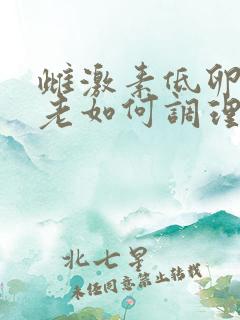 雌激素低卵
老如何調理
北七星
未经同意禁止转载